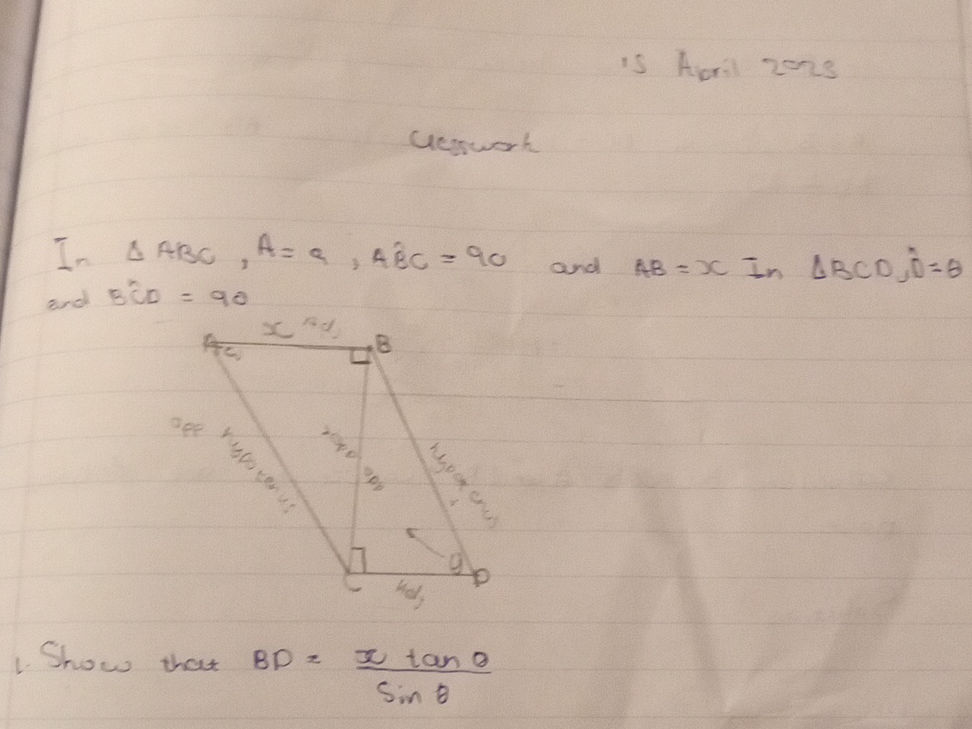 15 April 2025
Classwork
In Δ ABC , A = a , AB̂C = 90 and AB = x In ΔBCD, D̂ = θ
and BĈD = 90
x Adj
A
B
opp
hypotenus
opp
hypotenus
θ
C
D
Adj
1. Show that BD = x tan θ
Sin θ